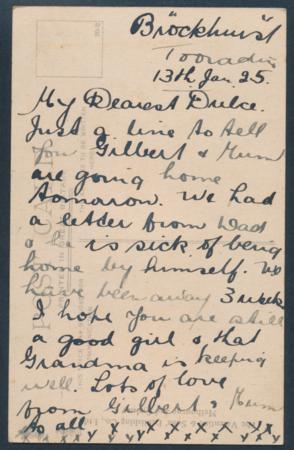 Bröckhurst
Tooradin
13th Jan. 25.
My Dearest Dulce.
Just a line to tell
you Gilbert & Mum
are going home
tomarrow. We had
a letter from Dad
& he is sick of being
home by himself. We
have been away 3 week
I hope you are still
a good girl & that
Grandma is keeping
well. Lots of love
from Gilbert & Mum
to all
x x x x x x x x x x x
POST CARD